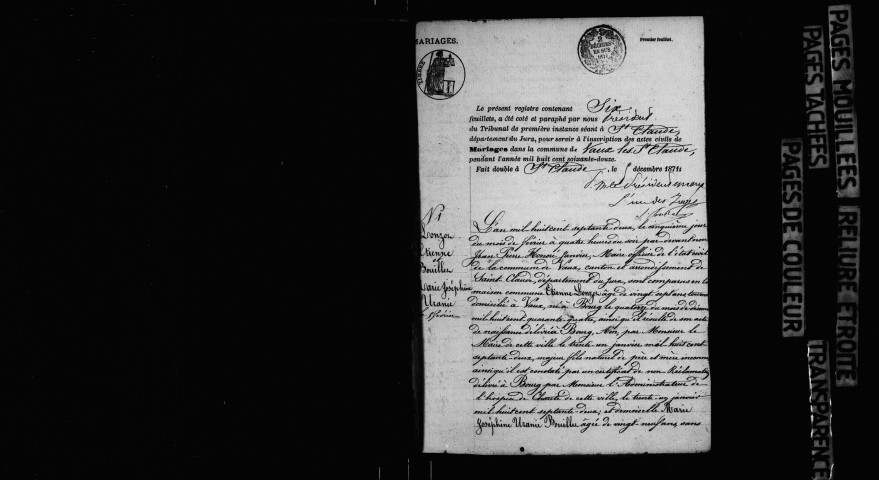 MARIAGES.
Premier feuillet.
TIMBRE
2
DÉCIMES
EN SUS
1871
Le présent registre contenant Six
feuillets, a été coté et paraphé par nous Président
du Tribunal de première instance séant à St Claude,
département du Jura, pour servir à l'inscription des actes civils de
Mariages dans la commune de Vaux les St Claude,
pendant l'année mil huit cent soixante-douze.
Fait double à St Claude, le 5 décembre 1871
P. mr le Président
L'un des Juges
N° 1
Lonzon
Etienne
&
Bouillee
Marie Joséphine
Uranie
5 février
L'an mil huit cent septante deux, le cinquième jour
du mois de février à quatre heures du soir par devant nous
Jean Pierre Honoré Janvier, Maire officier de l'état civil
de la commune de Vaux, canton et arrondissement de
Saint-Claude, département du Jura, sont comparus en la
maison commune Etienne Lonzon âgé de vingt sept ans
domicilié à Vaux, né à Bourg le quatorze du mois de
mil huit cent quarante quatre, ainsi qu'il résulte de son acte
de naissance délivré à Bourg, Ain, par Monsieur le
Maire de cette ville le trente un janvier mil huit cent
septante-deux, majeur fils naturel de père et mère inconnus
ainsi qu'il est constaté par un certificat de non Réclamation
délivré à Bourg par Monsieur l'Administrateur de
l'hospice de Charité de cette ville, le trente-un janvier
mil huit cent septante-deux; et demoiselle Marie
Joséphine Uranie Bouillee âgée de vingt-neuf ans, sans
PAGES MOUILLÉES
PAGES TACHÉES
PAGES DE COULEUR
RELIURE ÉTROITE
TRANSPARENCE